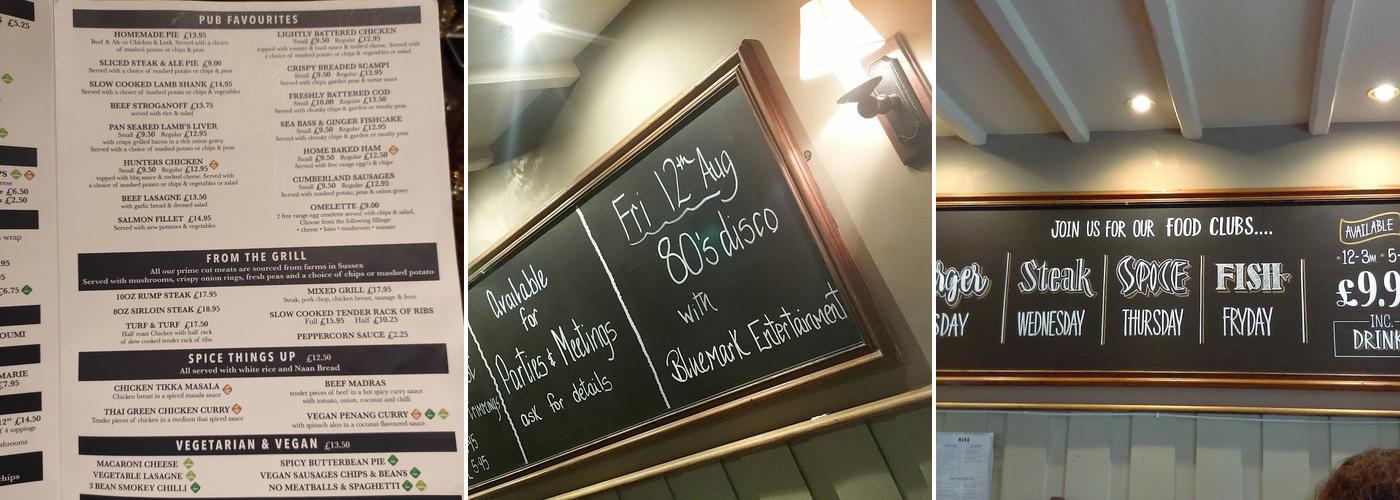 £5.25
£6.50
£2.50
wrap
£6.75
OUMI
MARIE
£7.95
12" £14.50
4 toppings
chips
PUB FAVOURITES
HOMEMADE PIE £13.95
Beef & Ale or Chicken & Leek. Served with a choice
of mashed potato or chips & peas
SLICED STEAK & ALE PIE £9.00
Served with a choice of mashed potato or chips & peas
SLOW COOKED LAMB SHANK £14.95
Served with a choice of mashed potato or chips & vegetables
BEEF STROGANOFF £13.75
served with rice & salad
PAN SEARED LAMB'S LIVER
Small £9.50 Regular £12.95
with crispy grilled bacon in a rich onion gravy.
Served with a choice of mashed potato or chips & peas
HUNTERS CHICKEN
Small £9.50 Regular £12.95
topped with bbq sauce & melted cheese. Served with
a choice of mashed potato or chips & vegetables or salad
BEEF LASAGNE £13.50
with garlic bread & dressed salad
SALMON FILLET £14.95
Served with new potatoes & vegetables
LIGHTLY BATTERED CHICKEN
Small £9.50 Regular £12.95
topped with tomato & basil sauce & melted cheese. Served with
a choice of mashed potato or chips & vegetables or salad
CRISPY BREADED SCAMPI
Small £9.50 Regular £12.95
Served with chips, garden peas & tartar sauce
FRESHLY BATTERED COD
Small £10.00 Regular £13.50
Served with chunky chips & garden or mushy peas
SEA BASS & GINGER FISHCAKE
Small £9.50 Regular £12.95
Served with chunky chips & garden or mushy peas
HOME BAKED HAM
Small £9.50 Regular £12.50
Served with free range egg/s & chips
CUMBERLAND SAUSAGES
Small £9.50 Regular £12.95
Served with mashed potato, peas & onion gravy
OMELETTE £9.50
2 free range egg omelette served with chips & salad,
Choose from the following fillings:
• cheese • ham • mushroom • tomato
FROM THE GRILL
All our prime cut meats are sourced from farms in Sussex
Served with mushrooms, crispy onion rings, fresh peas and a choice of chips or mashed potato
10OZ RUMP STEAK £17.95
8OZ SIRLOIN STEAK £18.95
TURF & TURF £17.50
Half roast Chicken with half rack
of slow cooked tender rack of ribs.
MIXED GRILL £17.95
Steak, pork chop, chicken breast, sausage & liver.
SLOW COOKED TENDER RACK OF RIBS
Full £15.95 Half £10.25
PEPPERCORN SAUCE £2.25
SPICE THINGS UP £12.50
All served with white rice and Naan Bread
CHICKEN TIKKA MASALA
Chicken breast in a spiced masala sauce
THAI GREEN CHICKEN CURRY
Tender pieces of chicken in a medium thai spiced sauce
BEEF MADRAS
tender pieces of beef in a hot spicy curry sauce
with tomato, onion, coconut and chilli
VEGAN PENANG CURRY
with spinach aloo in a coconut flavoured sauce
VEGETARIAN & VEGAN £13.50
MACARONI CHEESE
VEGETABLE LASAGNE
3 BEAN SMOKEY CHILLI
SPICY BUTTERBEAN PIE
VEGAN SAUSAGES CHIPS & BEANS
NO MEATBALLS & SPAGHETTI
Trimmings
5.95
Available
for
Parties & Meetings
ask for details
Fri 12th Aug
80's disco
with
Bluemark Entertainment
JOIN US FOR OUR FOOD CLUBS....
rger
SDAY
Steak
WEDNESDAY
SPICE
THURSDAY
FISH
FRYDAY
AVAILABLE
12-3PM • 5-
£9.9
INC.
DRINK
MENU